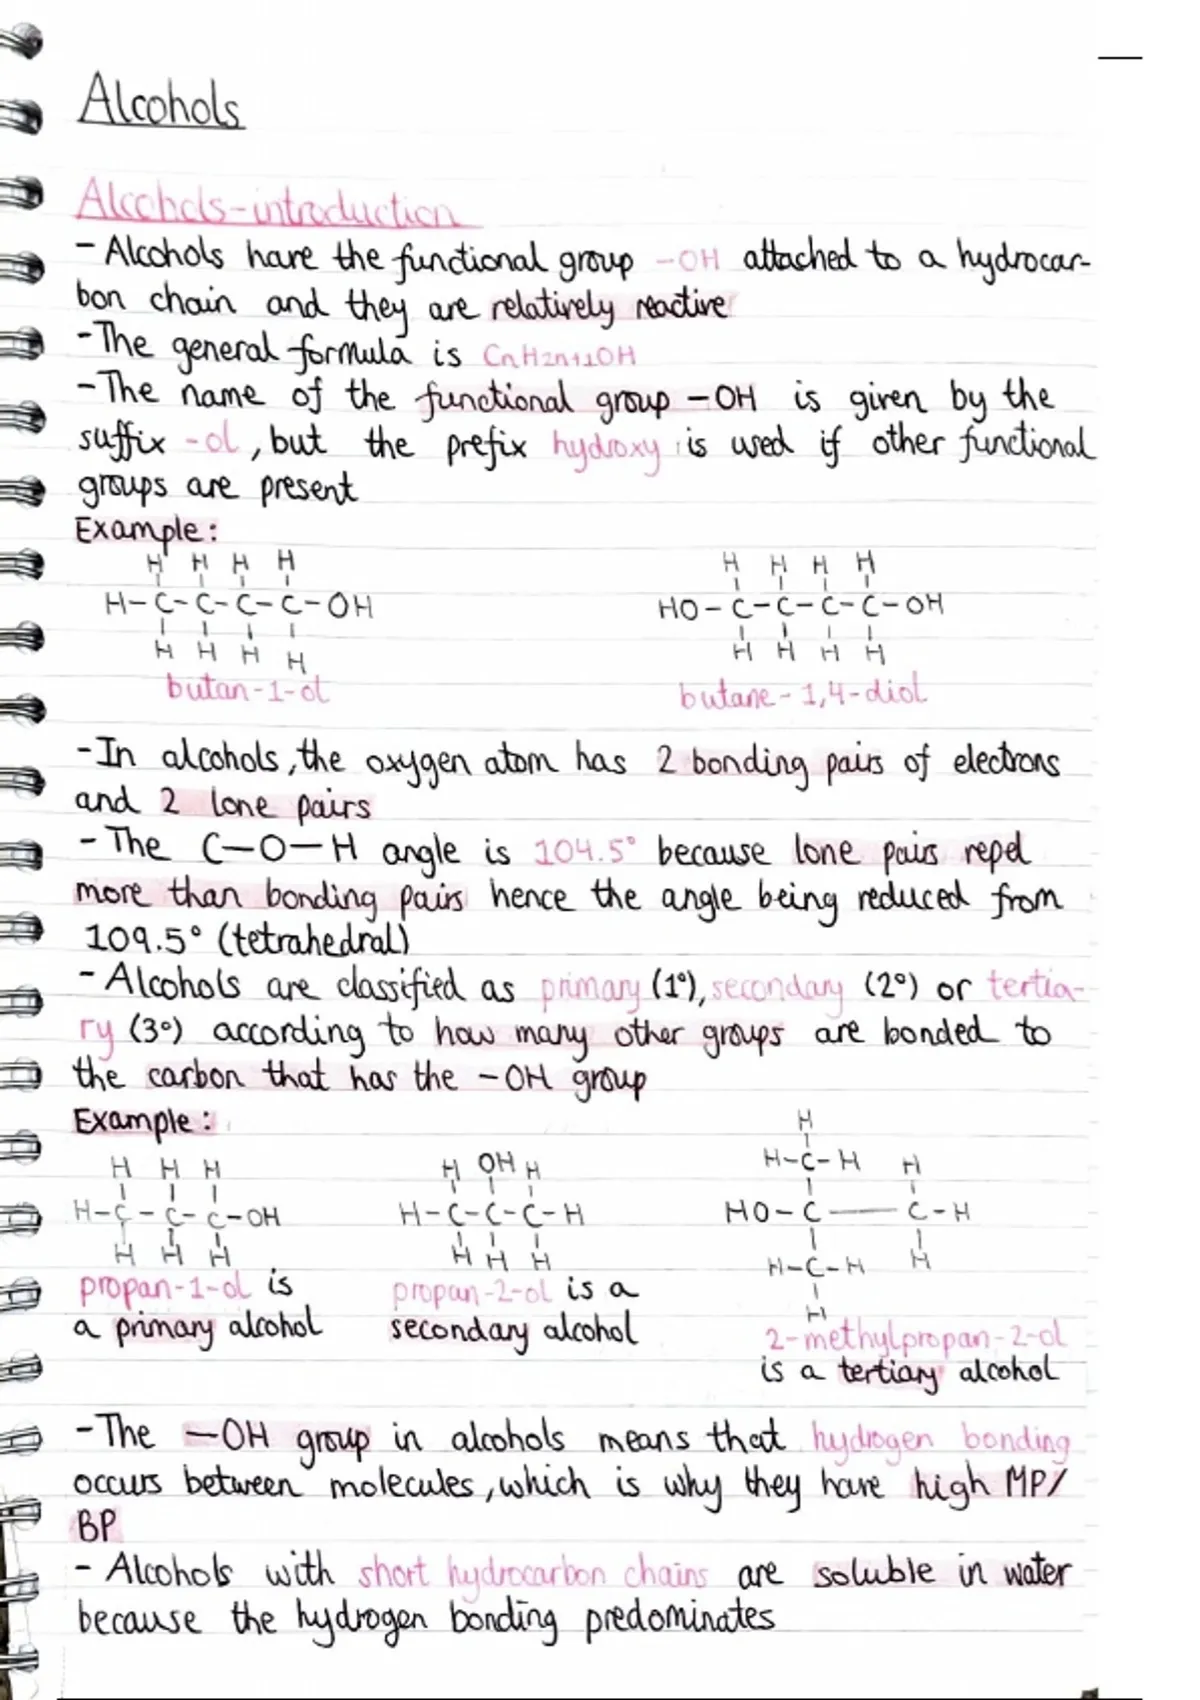 Alcohols
Alcohols-introduction
- Alcohols have the functional group -OH attached to a hydrocar-
bon chain and they are relatively reactive
- The general formula is CnH2n+1OH
- The name of the functional group -OH is given by the
suffix -ol, but the prefix hydroxy is used if other functional
groups are present
Example:
H H H H
H-C-C-C-C-OH
H H H H
butan-1-ol
H H H H
HO-C-C-C-C-OH
H H H H
butane-1,4-diol
- In alcohols, the oxygen atom has 2 bonding pairs of electrons
and 2 lone pairs
- The C-O-H angle is 104.5° because lone pairs repel
more than bonding pairs hence the angle being reduced from
109.5° (tetrahedral)
- Alcohols are classified as primary (1°), secondary (2°) or tertia-
ry (3°) according to how many other groups are bonded to
the carbon that has the -OH group
Example:
H H H
H-C-C-C-OH
H H H
propan-1-ol is
a primary alcohol
H OH H
H-C-C-C-H
H H H
propan-2-ol is a
secondary alcohol
H
H-C-H H
HO-C-C-H
H-C-H H
H
2-methylpropan-2-ol
is a tertiary alcohol
- The -OH group in alcohols means that hydrogen bonding
occurs between molecules, which is why they have high MP/
BP
- Alcohols with short hydrocarbon chains are soluble in water
because the hydrogen bonding predominates